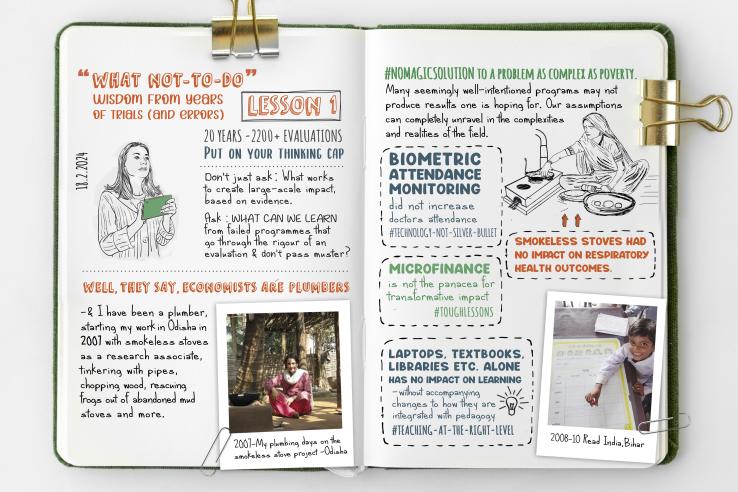 "WHAT NOT-TO-DO"
WISDOM FROM YEARS
OF TRIALS (AND ERRORS)
LESSON 1
20 YEARS -2200+ EVALUATIONS
PUT ON YOUR THINKING CAP
18.2.2024
Don't just ask: What works
to create large-scale impact,
based on evidence.
Ask : WHAT CAN WE LEARN
from failed programmes that
go through the rigour of an
evaluation & don't pass muster?
WELL, THEY SAY, ECONOMISTS ARE PLUMBERS
-& I have been a plumber,
starting my work in Odisha in
2007 with smokeless stoves
as a research associate,
tinkering with pipes,
chopping wood, rescuing
frogs out of abandoned mud
stoves and more.
2007-My plumbing days on the
smokeless stove project -Odisha
#NOMAGICSOLUTION TO A PROBLEM AS COMPLEX AS POVERTY.
Many seemingly well-intentioned programs may not
produce results one is hoping for. Our assumptions
can completely unravel in the complexities
and realities of the field.
BIOMETRIC
ATTENDANCE
MONITORING
did not increase
doctors attendance
#TECHNOLOGY-NOT-SILVER-BULLET
SMOKELESS STOVES HAD
NO IMPACT ON RESPIRATORY
HEALTH OUTCOMES.
MICROFINANCE
is not the panacea for
transformative impact
#TOUGHLESSONS
LAPTOPS, TEXTBOOKS,
LIBRARIES ETC. ALONE
HAS NO IMPACT ON LEARNING
-without accompanying
changes to how they are
integrated with pedagogy
#TEACHING-AT-THE-RIGHT-LEVEL
2008-10 Read India,Bihar